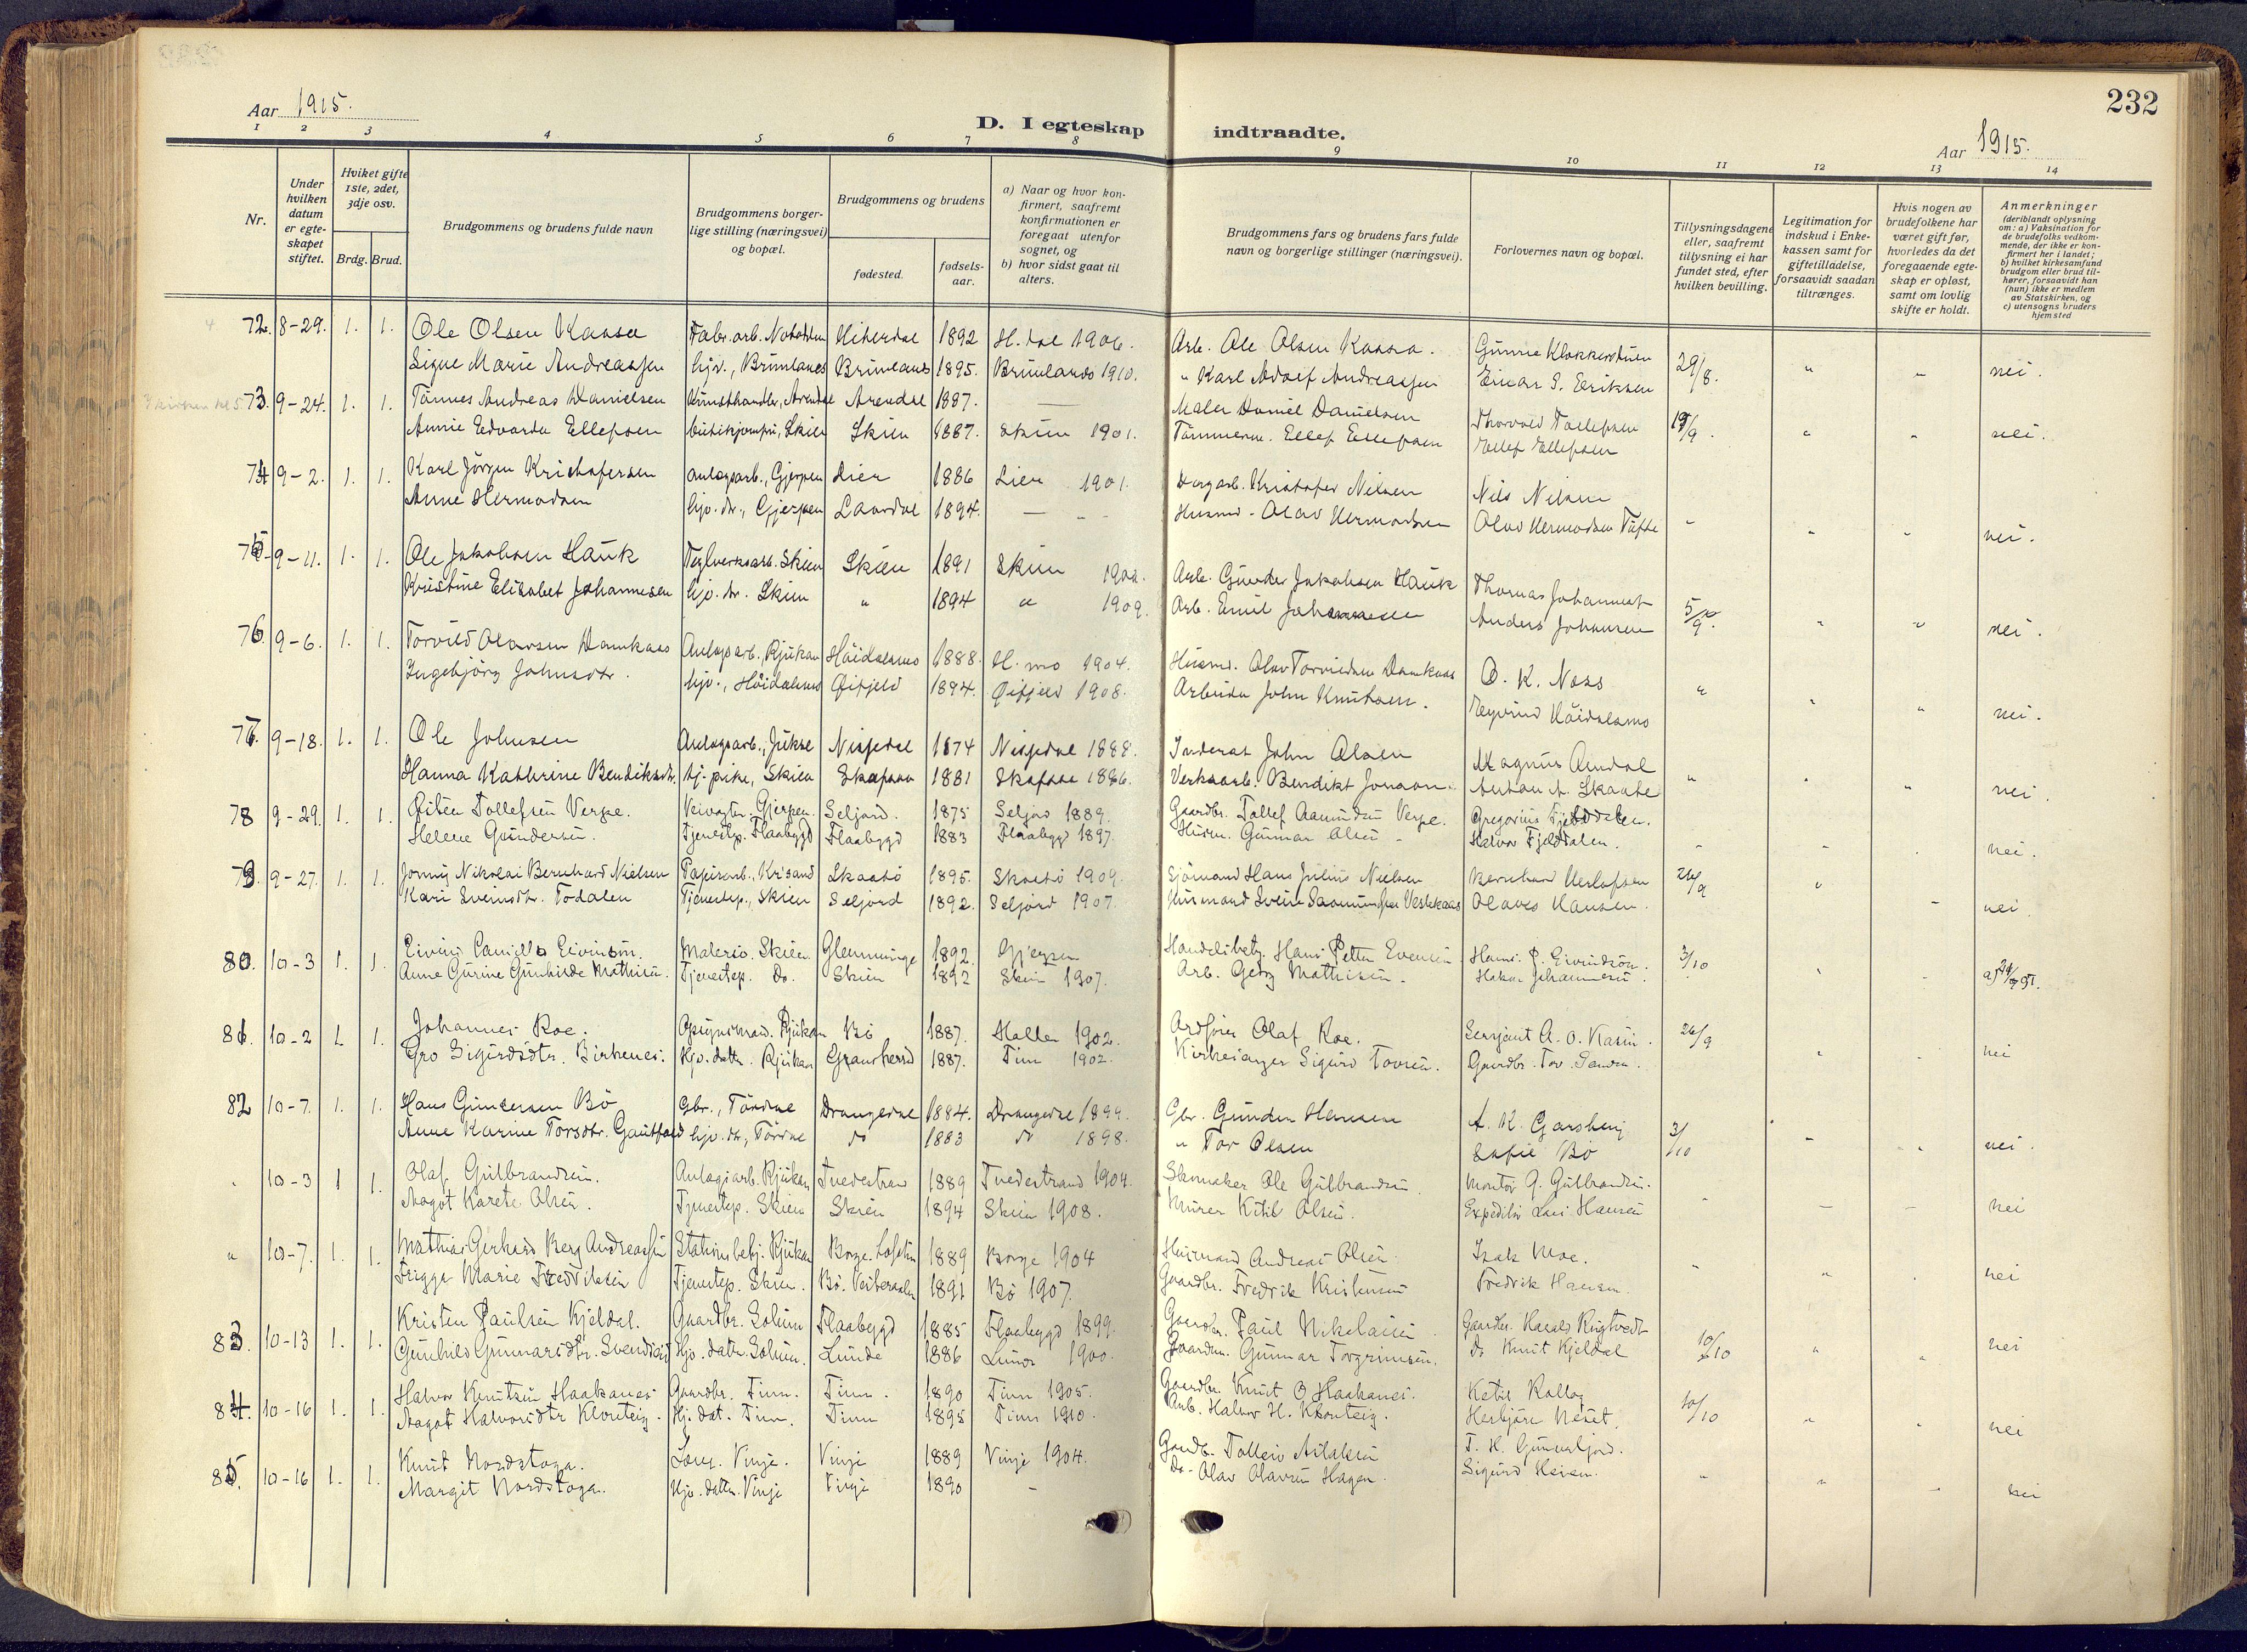 232
Aar 1915.
D. I egteskap indtraadte.
Aar 1915.
1 2 3 4 5 6 7 8 9 10 11 12 13 14
Nr.
Under hvilken datum er egteskapet stiftet.
Hviket gifte 1ste, 2det, 3dje osv.
Brdg. Brud.
Brudgommens og brudens fulde navn
Brudgommens borgerlige stilling (næringsvei) og bopæl.
Brudgommens og brudens
fødested.
fødselsaar.
a) Naar og hvor konfirmert, saafremt konfirmationen er foregaat utenfor sognet, og
b) hvor sidst gaat til alters.
Brudgommens fars og brudens fars fulde navn og borgerlige stillinger (næringsvei).
Forlovernes navn og bopæl.
Tillysningsdagene eller, saafremt tillysning ei har fundet sted, efter hvilken bevilling.
Legitimation for indskud i Enkekassen samt for giftetilladelse, forsaavidt saadan tiltrænges.
Hvis nogen av brudefolkene har været gift før, hvorledes da det foregaaende egteskap er opløst, samt om lovlig skifte er holdt.
Anmerkninger (deriblandt oplysning om: a) Vaksination for de brudefolks vedkommende, der ikke er konfirmert her i landet; b) hvilket kirkesamfund brudgom eller brud tilhører, forsaavidt han (hun) ikke er medlem av Statskirken, og c) utensogns bruders hjemsted
72. 8-29. 1. 1. Ole Olsen Kaasa Fabr. arb. Notodden Hiterdal 1892 H.dal 1906. Arb. Ole Olsen Kaasa. 29/8. " " nei.
Signe Marie Andreassen hjv., Brunlanes Brunlanes 1895. Brunlanes 1910. " Karl Adolf Andreassen Einar S. Eriksen
73. 9-24. 1. 1. Tønnes Andreas Danielsen Kunsthandler, Arendal Arendal 1887. — Maler Daniel Danielsen Thorvald Tollefsen 19/9. " " nei.
Annie Edvarda Ellefsen Skien Skien 1887. Skien 1901. Ellef Ellefsen Ellef Ellefsen
74 9-2. 1. 1. Karl Jørgen Kristofersen anlægsarb., Gjerpen Lier 1886 Lier 1901. Kristofer Nilsen Nils Nilsen
Anne Hermodsen hjv. dr., Gjerpen Laardal 1894. — Husmd. Olav Hermodsen Olav Hermodsen Tufte - " " nei.
75 9-11. 1. 1. Ole Jakobsen Hauk Teglverksarb. Skien Skien 1891 Skien Arb. Gunder Jakobsen Hauk Thomas Johannesen
Kristine Elisabet Johannesen hjv. dr. Skien " 1894 " 1909. Arb. Emil Johannesen Anders Johansen 5/9. " " nei.
76. 9-6. 1. 1. Torvild Olavsen Damkaas Anlægsarb., Rjukan Höidalsmo 1888. H.mo 1904. Husmd. Olav Torvildsen Damkaas O. K. Næss
Ingebjörg Johnsdtr. hjv., Höidalsmo Öifjeld 1894. Öifjeld 1908. Arbeider John Knutsen. Eyvind Höidalsmo " " " nei.
77. 9-18. 1. 1. Ole Johnsen Anlægsarb., Nissedal 1874 Nissedal 1888. Inderst John Olsen Magnus
Hanna Kathrine Bendiksdtr. hj. pike, Skien Skafsaa 1881 Skafsaa 1896. Verksarb. Bendikt Jonasen. " " " nei.
78 9-29. 1. 1. Öistein Tollefsen Verpe. Veivogter Gjerpen. Seljord. 1875 Seljord 1889. Gaardbr. Tollef Aamundsen Verpe. Gregorius Fjelddalen.
Helene Gundersen. Tjenestep. Flaabygd Flaabygd 1883 Flaabygd 1897. Husm. Gunnar Olsen - Halvor Fjelddalen. - - - nei.
79. 9-27. 1. 1. Jonny Nikolai Bernhard Nielsen Papirarb., Krisand Skaatö 1895. Skaatö 1909. Sjömand Hans Julius Nielsen Bernhard Herlofsen 26/9 "
Kari Sveinsdtr. Todalen Tjenestep., Skien Seljord 1892. Seljord 1907. Husmand Svein Olaves Hansen. - nei.
80. 10-3 1. 1. Eivind Skien. Glemminge 1892. Gjerpen Hans Petter Evensen Hans. P. Eivindsön. 3/10
Anne Gurine Gunhilde Mathisen. Tjenestep. Do. Skien 1892 Skien 1907. Arb. Georg Mathisen. Hakon Johannesen.
81. 10-2 1. 1. Johannes Roe. Rjukan Bö 1887. Halla 1902. Ordförer Olaf Roe. Sersjant A. O. Kasin. 26/9
Gro Sigurdsdtr. Birkenes. Hjv. datter. Rjukan Gransherred 1887. Tinn 1902. Kirkesanger Sigurd Tovsen. Gaardbr. Tov. " - nei
82 10-7. 1. 1. Hans Gundersen Bö Gbr., Tördal Drangedal 1884. Drangedal 1899. Gbr. Gunder Hansen A. K. Garsberg 3/10
Anne Karine Torsdtr. Gautfald hjv. dr., Tördal do 1883 do 1898. " Tor Olsen Sofie Bö - " nei.
" 10-3 1 1. Olaf Gulbrandsen. Anlægsarb. Rjukan Tvedestrand 1889 Tvedestrand 1904. Skomaker Ole Gulbrandsen. Montör G. Gulbrandsen.
Magot Karete Olsen. Tjenestep. Skien Skien 1894 Skien 1908. Murer Kitil Olsen. Expeditör Hansen - - - nei
" 10-7. 1. 1. Mathias Gerhard Berg Andreassen Stationsbetj. Rjukan Borge. Lofoten 1889 Borge 1904 Husmand Andreas Olsen Isak Moe.
Frigga Marie Fredriksen Tjenestep. Skien. Bö. Vesteraalen 1891 Bö 1907. Gaardbr. Fredrik Kristensen Fredrik Hansen. - " . nei
83 10-13 1. 1. Kristen Paulsen Kjeldal. Gaardbr. Solum Flaabygd 1885 Flaabygd 1899. Gaardbr. Paul Nikolaisen Gaardbr. Harald Rugtvedt 10/10
Gunhild Gunnarsdtr. Hjv. datter Solum. Lunde 1886 Lunde 1900. Gaardm. Gunnar Torgrimsen. do Knut Kjeldal " " nei
84. 10-16 1. 1. Halvor Knutsen Haakanes Gaardbr. Tinn. Tinn. 1890 Tinn 1905. Gaardbr. Knut O Haakanes. Ketil Rollag 10/10
Aagot Halvorsdtr Klonteig. Hj. dat. Tinn. Tinn 1895 Tinn 1910. Arb. Halvor H. Klonteig. Herbjörn Neset. " " nei
85. 10-16 1. 1. Knut Nordstoga. Vinje. Vinje 1889 Vinje 1904. Gaardb. Tolleiv Aslaksen
Margit Nordstoga. Hjv. datter. Vinje Vinje 1890 - Do. Olav Olavsen Hagen. " " - nei